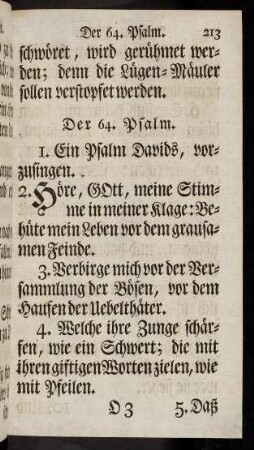 Der 64. Psalm. 213
schwöret, wird gerühmet wer-
den; denn die Lügen-Mäuler
sollen verstopfet werden.
Der 64. Psalm.
1. Ein Psalm Davids, vor-
zusingen.
2. Höre, GOtt, meine Stim-
me in meiner Klage: Be-
hüte mein Leben vor dem grausa-
men Feinde.
3. Verbirge mich vor der Ver-
sammlung der Bösen, vor dem
Haufen der Uebelthäter.
4. Welche ihre Zunge schär-
fen, wie ein Schwert; die mit
ihren giftigen Worten zielen, wie
mit Pfeilen.
O 3 5. Daß